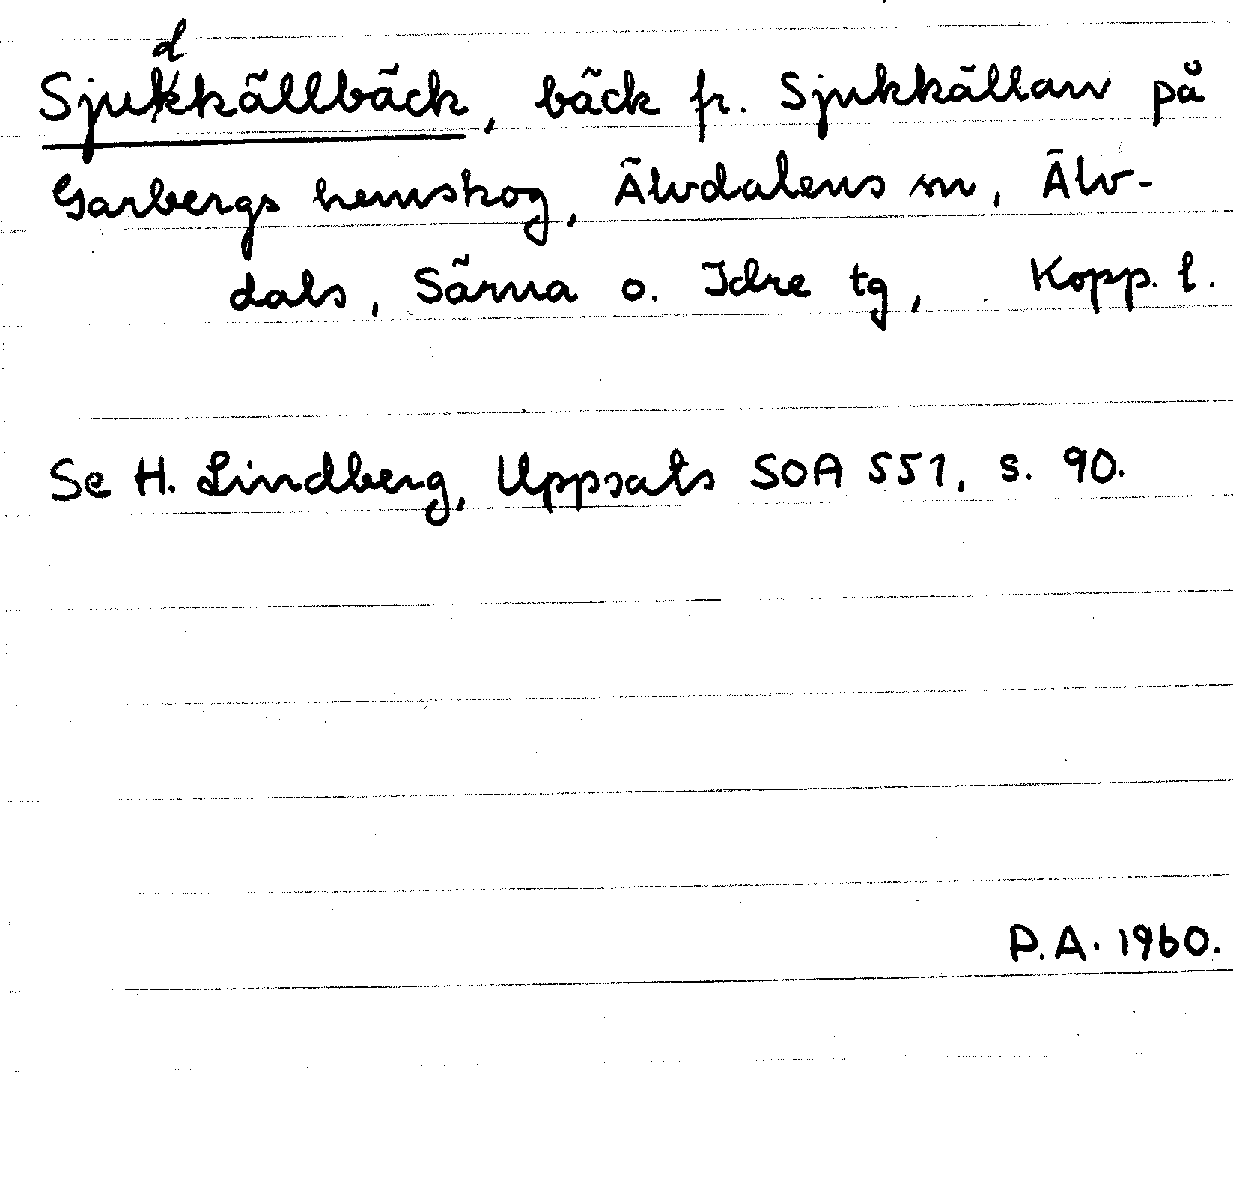 d
Sjukkällbäck, bäck fr. Sjukkällan på
Garbergs hemskog, Älvdalens sn, Älv-
dals, Särna o. Idre tg, Kopp. l.
Se H. Lindberg, Uppsats SOA 551, s. 90.
P.A. 1960.